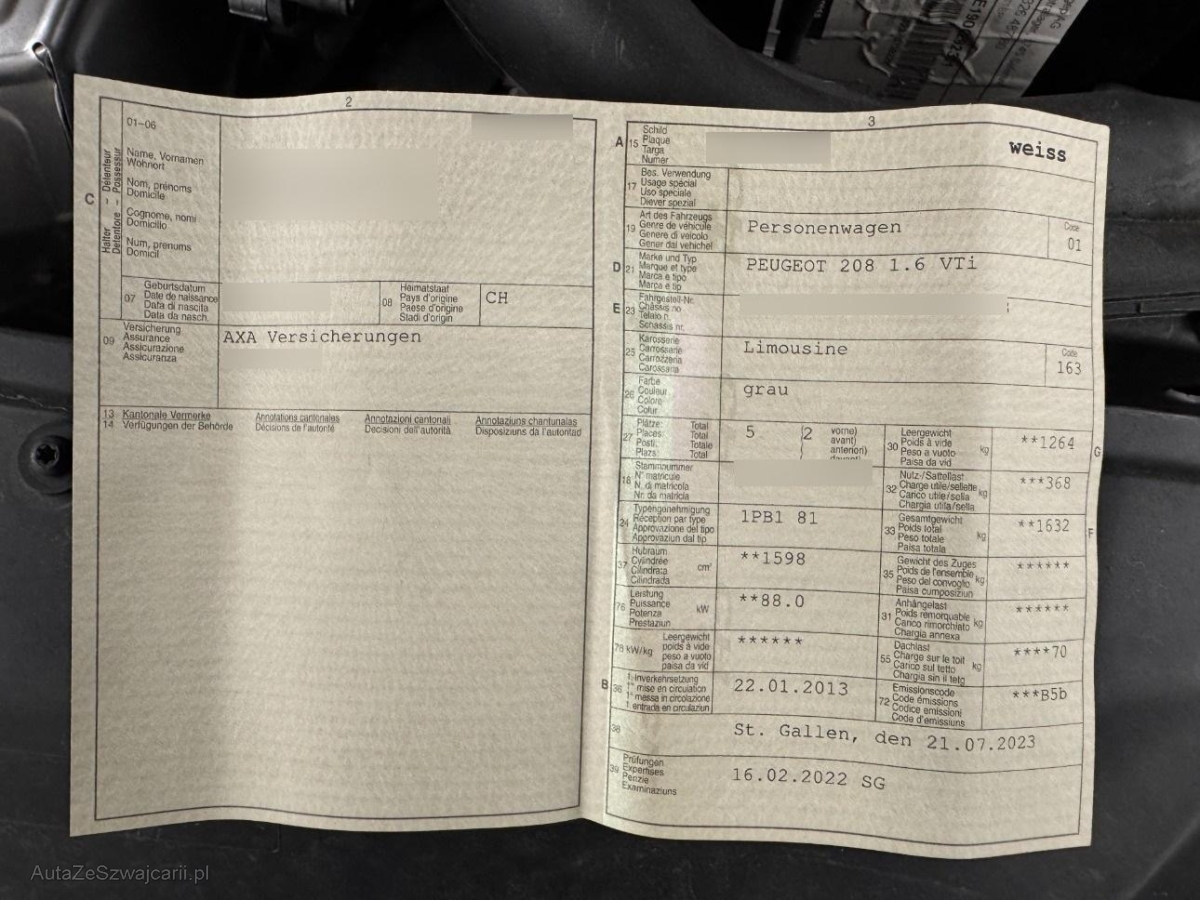 2
01-06
C
Halter - Détenteur
Detentore - Possessur
Name, Vornamen
Wohnort
Nom, prénoms
Domicile
Cognome, nomi
Domicilio
Num, prenums
Domicil
07
Geburtsdatum
Date de naissance
Data di nascita
Data da nasch.
08
Heimatstaat
Pays d'origine
Paese d'origine
Stadi d'origin
CH
09
Versicherung
Assurance
Assicurazione
Assicuranza
AXA Versicherungen
13 Kantonale Vermerke Annotations cantonales Annotazioni cantonali Annotaziuns chantunalas
14 Verfügungen der Behörde Décisions de l'autorité Decisioni dell'autorità Disposiziuns da l'autoritad
3
A 15
Schild
Plaque
Targa
Numer
weiss
17
Bes. Verwendung
Usage spécial
Uso speciale
Diever spezial
19
Art des Fahrzeugs
Genre de véhicule
Genere di veicolo
Gener dal vehichel
Personenwagen
Code
01
D 21
Marke und Typ
Marque et type
Marca e tipo
Marca e tip
PEUGEOT 208 1.6 VTi
E 23
Fahrgestell-Nr.
Châssis no
Telaio n.
Schassis nr.
25
Karosserie
Carrosserie
Carrozzeria
Carossaria
Limousine
Code
163
26
Farbe
Couleur
Colore
Colur
grau
27
Plätze: Total
Places: Total
Posti: Totale
Plazs: Total
5 (2 vorne)
avant)
anteriori)
30
Leergewicht
Poids à vide
Peso a vuoto
Paisa da vid
kg
**1264
G
18
Stammnummer
N° matricule
N. di matricola
Nr. da matricla
32
Nutz-/Sattellast
Charge utile/sellette
Carico utile/sella
Chargia utila/sella
kg
***368
24
Typengenehmigung
Réception par type
Approvazione del tipo
Approvaziun dal tip
1PB1 81
33
Gesamtgewicht
Poids total
Peso totale
Paisa totala
kg
**1632
F
37
Hubraum
Cylindrée
Cilindrata
Cilindrada
cm³
**1598
35
Gewicht des Zuges
Poids de l'ensemble
Peso del convoglio
Paisa cumposiziun
kg
******
76
Leistung
Puissance
Potenza
Prestaziun
kW
**88.0
31
Anhängelast
Poids remorquable
Carico rimorchiato
Chargia annexa
kg
******
78 kW/kg
Leergewicht
poids à vide
peso a vuoto
paisa da vid
******
55
Dachlast
Charge sur le toit
Carico sul tetto
Chargia sin il tetg
kg
****70
B 36
1. Inverkehrsetzung
1re mise en circulation
1a messa in circolazione
1. entrada en circulaziun
22.01.2013
72
Emissionscode
Code émissions
Codice emissioni
Code d'emissiuns
***B5b
38
St. Gallen, den 21.07.2023
39
Prüfungen
Expertises
Perizie
Examinaziuns
16.02.2022 SG
AutaZeSzwajcarii.pl